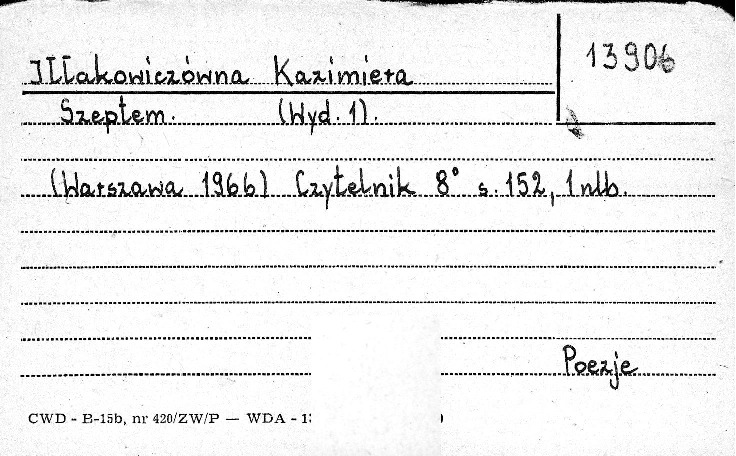 Iłłakowiczówna Kazimiera
13906
Szeptem. (Wyd. 1).
(Warszawa 1966) Czytelnik 8° s. 152, 1 nlb.
Poezje
CWD - B-15b, nr 420/ZW/P — WDA - 1